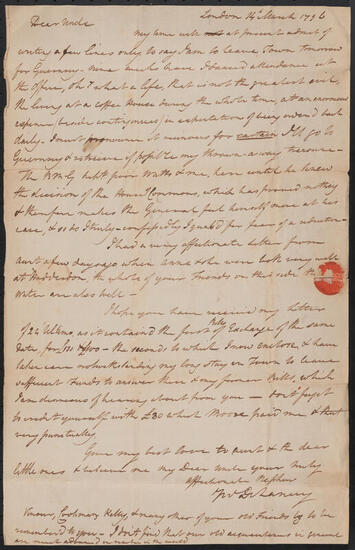 London 14 March 1796
Dear Uncle
My time will not at present admit of
writing a few lines only to say I am to leave Town tomorrow
for Guernsey. much have I danced attendance at
the Office, Oh! what a life, that is not the greatest evil,
the living at a Coffee House during the whole time, at an enormous
expence (besides contingencies) in expectation of being order'd back
daily. I must pronounce it ruinous for certain I'll go to
Guernsey & retrieve if possible my thrown away treasure
The kept poor Watts & me, here until he knew
the decision of the House Commons, which has proved
& therefore makes the General feel himself more at his
ease, & so do I truly for fear of a reduction
I had a very affectionate Letter from
Aunt a few days ago when Anna & she were both very well
at the whole of your Friends on this side the
Water are also well
I hope you have received my Letter
of 24 Ultimo, as it contained the first Bill of Exchange of the same
date, for the seconds to which I now enclose, & have
taken care notwithstanding my long stay in Town to leave
sufficient Funds to answer these & my former Bills, which
I am desirous of hearing about from you — don't forget
to credit yourself with £30 which Moore paid me & that
very punctually
Give my best love to Aunt & the dear
little ones & believe me my Dear Uncle your truly
affectionate Nephew
DeLancey
Kelly, & many other of your old Friends beg to be
remember'd to you — I don't find that our old acquaintances in general
are much